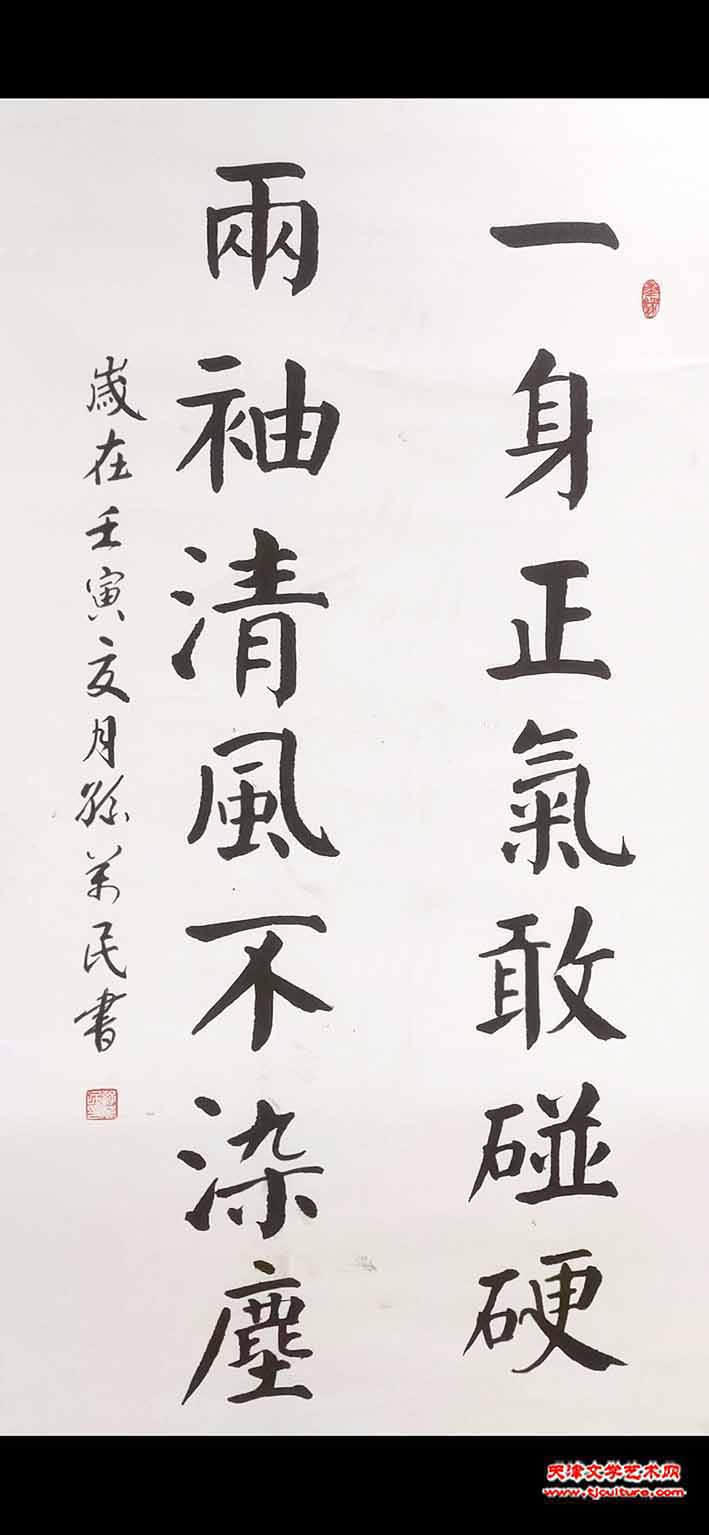 一身正氣敢碰硬
兩袖清風不染塵
歲在壬寅亥月孫萬民書
天津文学艺术网
www.tjculture.com